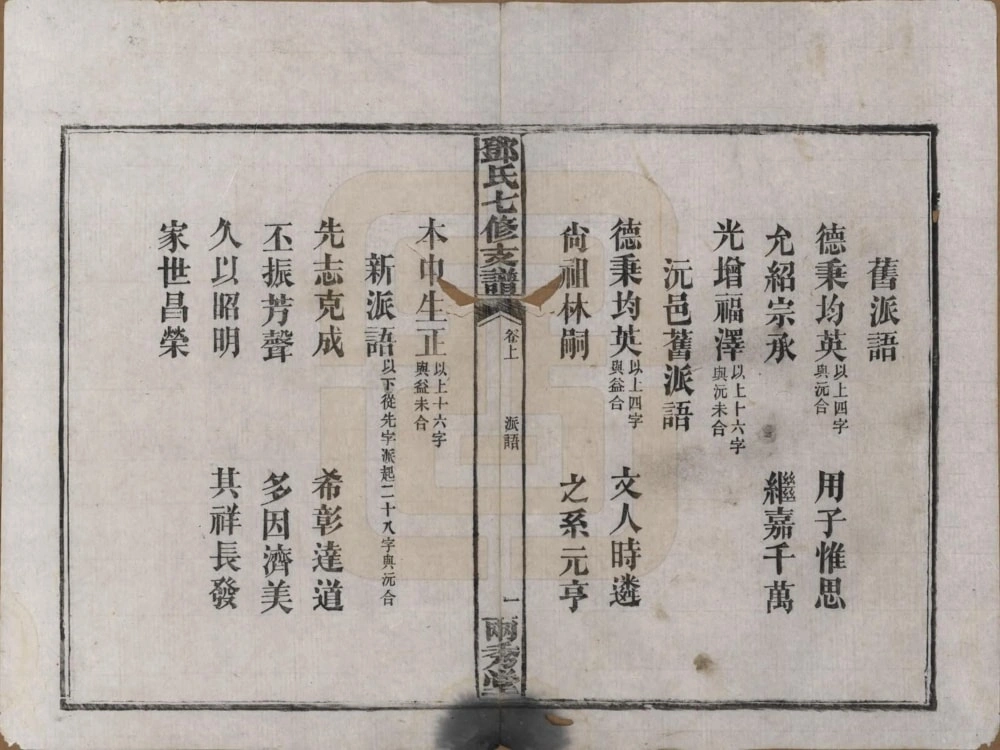 舊派語
德秉均英以上四字與沅合 用子惟思
允紹宗承 繼嘉千萬
光增福澤以上十六字與沅未合
沅邑舊派語
德秉均英以上四字與益合 文人時遴
尙祖林嗣 之系元亨
鄧氏七修支譜 卷上 派語 一 兩秀堂
木中生正以上十六字與益未合
新派語以下從先字派起二十八字與沅合
先志克成 希彰達道
丕振芳聲 多因濟美
久以昭明 其祥長發
家世昌榮